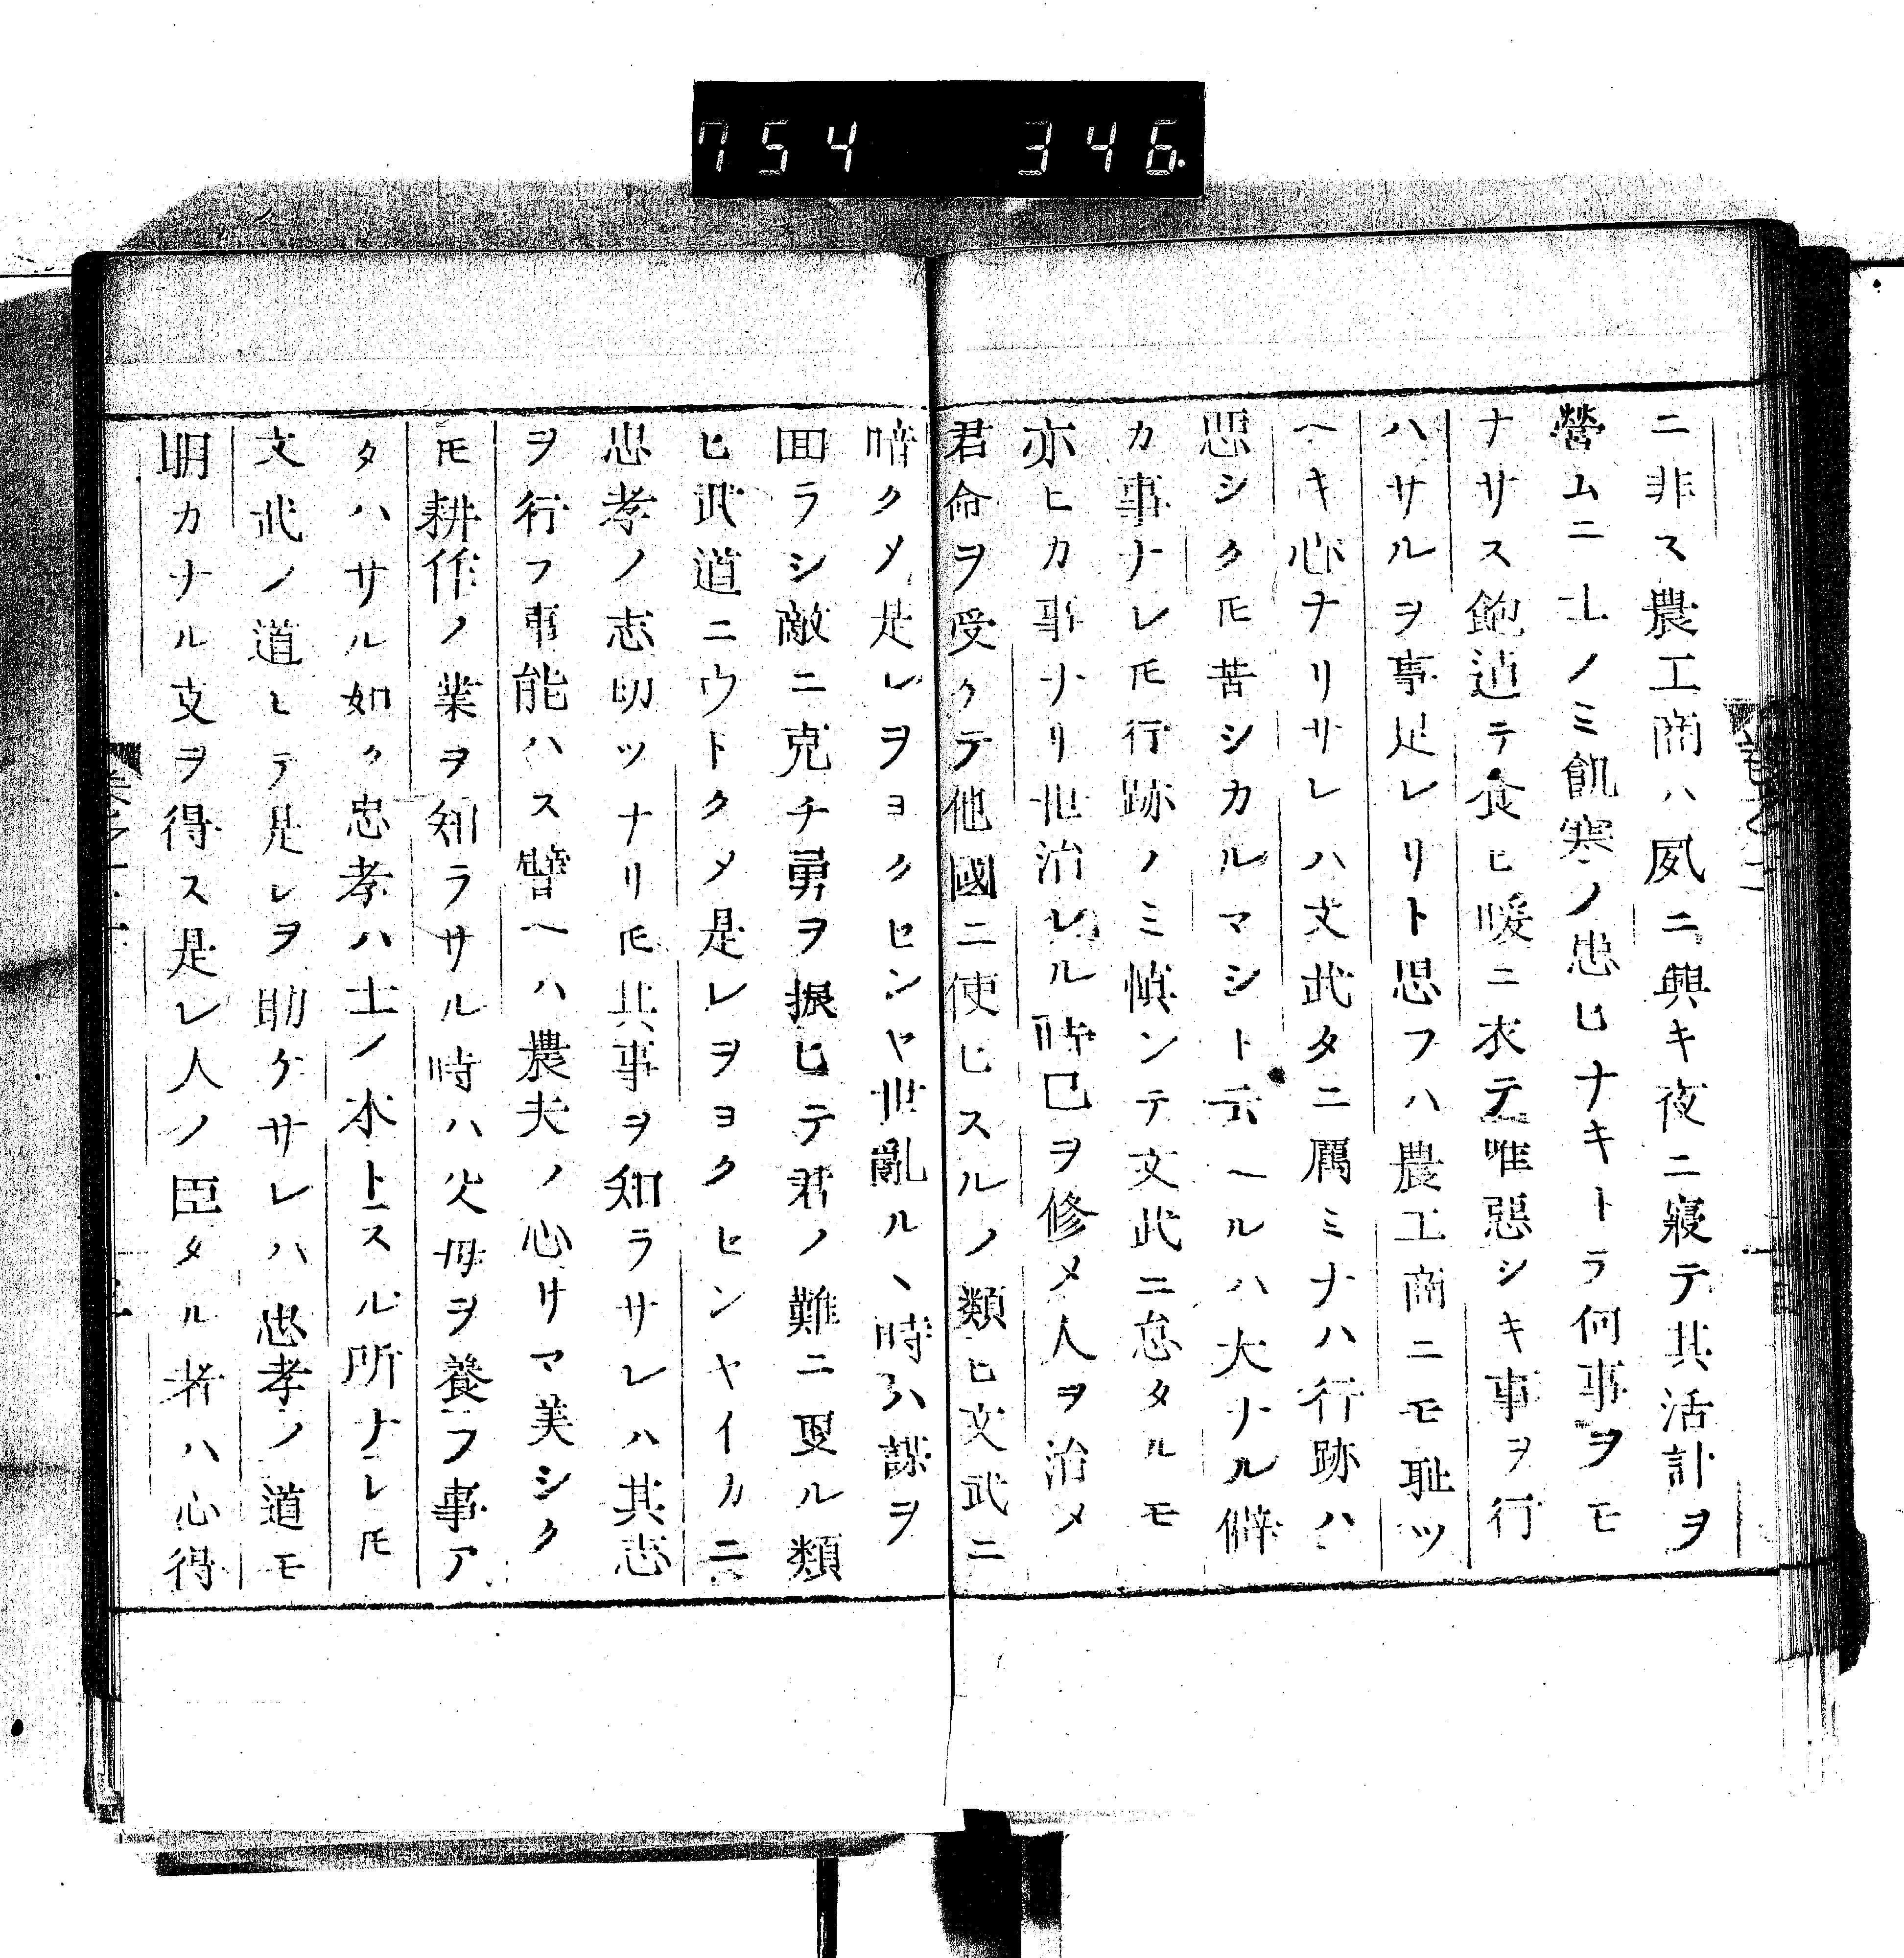 754 346
ニ非ス農工商ハ夙ニ興キ夜ニ寢テ其活計ヲ
營ムニ士ノミ飢寒ノ患ヒナキトラ何事ヲモ
ナサス飽迠テ食ヒ暖ニ衣テ唯惡シキ事ヲ行
ハサルヲ事足レリト思フハ農工商ニモ耻ツ
ヘキ心ナリサレハ文武タニ厲ミナハ行跡ハ
惡シクㄛ苦シカルマシト云ヘルハ大ナル僻
カ事ナレㄛ行跡ノミ愼ンテ文武ニ怠タルモ
亦ヒカ事ナリ世治レル時巳ヲ修メ人ヲ治メ
君命ヲ受クテ他國ニ使ヒスルノ類ヒ文武ニ
暗クメ是レヲヨクセンヤ世亂ルヽ時ハ謀ヲ
囬ラシ敵ニ克チ勇ヲ振ヒテ君ノ難ニ更ル類
ヒ武道ニウトクメ是レヲヨクセンヤイカニ
忠孝ノ志切ツナリㄛ其事ヲ知ラサレハ其志
ヲ行フ事能ハス譬ヘハ農夫ノ心サマ美シク
ㄛ耕作ノ業ヲ知ラサル時ハ父母ヲ養フ事ア
タハサル如ク忠孝ハ士ノ本トスル所ナレㄛ
文武ノ道ヒテ是レヲ助ケサレハ忠孝ノ道モ
明カナル支ヲ得ス是レ人ノ臣タル者ハ心得